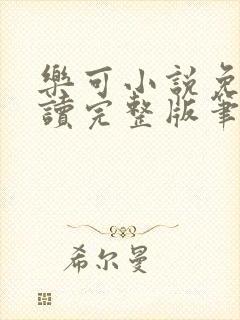 樂可小說免
讀完整版筆
希尔曼